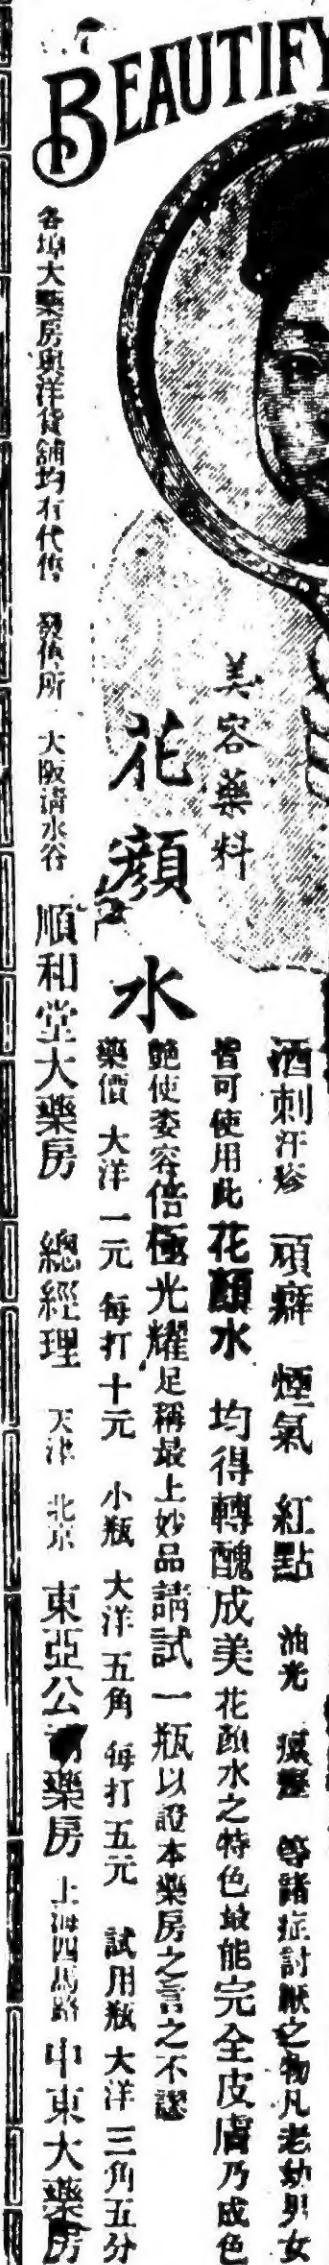 BEAUTIFY
美容藥料
花顏水
酒刺汗疹 頑癬 煙氣 紅點 油光 等諸症討厭之物凡老幼男女
皆可使用此花顏水 均得轉醜成美花顏水之特色最能完全皮膚乃成色
艶使姿容倍極光耀足稱最上妙品請試一瓶以證本藥房之言之不謬
藥價 大洋一元 每打十元 小瓶 大洋五角 每打五元 試用瓶 大洋三角五分
各埠大藥房與洋貨舖均有代售 發售所 大阪清水谷 順和堂大藥房 總經理 天津 北京 東亞公 藥房 上海四馬路 中東大藥房